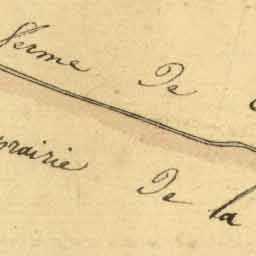 ferme De
prairie De la